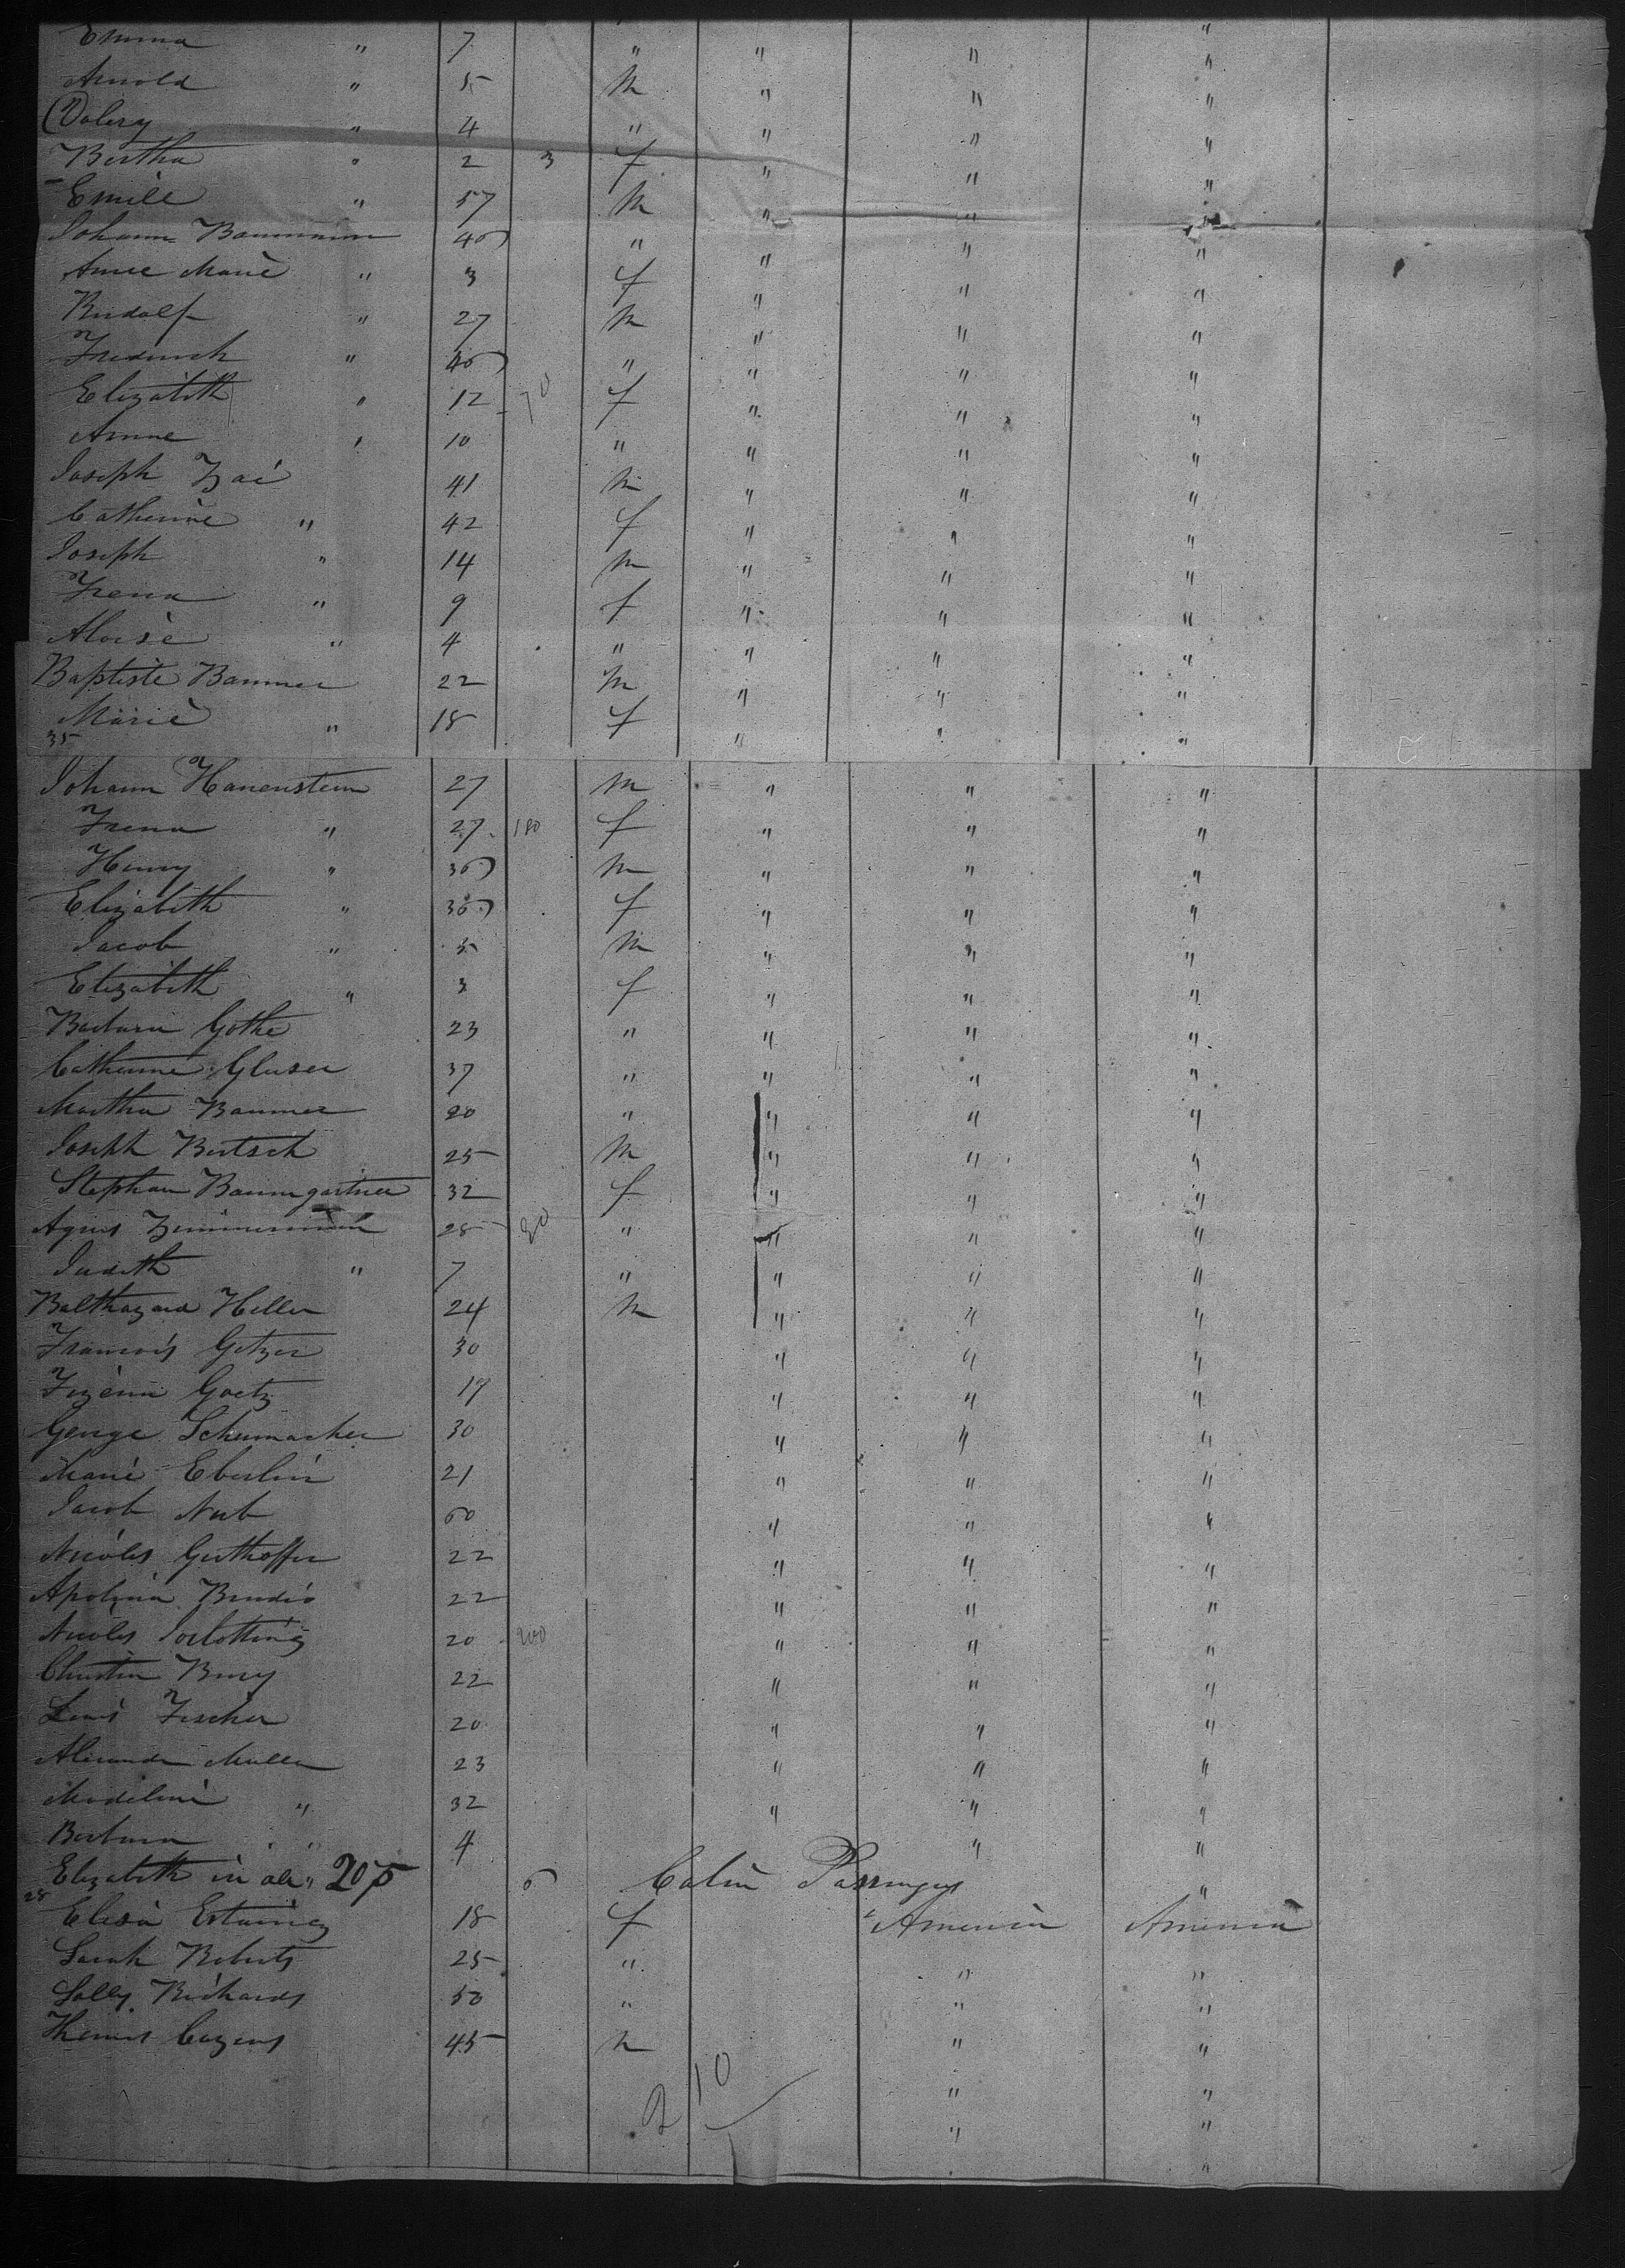 Emma " 7 " " " "
Arnold " 5 m " " "
Valery " 4 " " " "
Bertha " 2 3 f " " "
Emile " 57 m " " "
Johann Baumann 40 " " " "
Anne Marie " 3 f " " "
Rudolf " 27 m " " "
Frederich " 40 " " " "
Elizabeth " 12 70 f " " "
Anne " 10 " " " "
Joseph Zai 41 m " " "
Catherine " 42 f " " "
Joseph " 14 m " " "
Frena " 9 f " " "
Aloise " 4 " " " "
Baptiste Baumer 22 m " " "
Marie " 18 f " " "
35
Johann Hanenstein 27 m " " "
Frena " 27 180 f " " "
Henry " 30 m " " "
Elizabeth " 30 f " " "
Jacob " 5 m " " "
Elizabeth " 3 f " " "
Barbara Gothe 23 " " " "
Catherine Gluser 37 " " " "
Martha Baumer 20 " " " "
Joseph Bertsch 25 m " " "
Stephan Baumgartner 32 f " " "
Agnes Zimmermann 28 " " " "
Judith " 7 " " " "
Balthazard Heller 24 m " " "
Francois Getzer 30 " " "
Goetz 19 " " "
George Schumacher 30 " " "
Marie Eberlin 21 " " "
Jacob 60 " " "
Nicolas Gerthoffer 22 " " "
Apolina 22 " " "
Nicolas 20 200 " " "
Christin Bury 22 " " "
Louis Fischer 20 " " "
Alexander Muller 23 " " "
Madeline " 32 " " "
Barbara " 4 " "
Elizabeth " 205 6 Cabin Passengers "
28
Elisa 18 f America America
Sarah Roberts 25 " " "
Sally Richards 50 " " "
Thomas Cozens 45 m " "
" "
210 " "
"